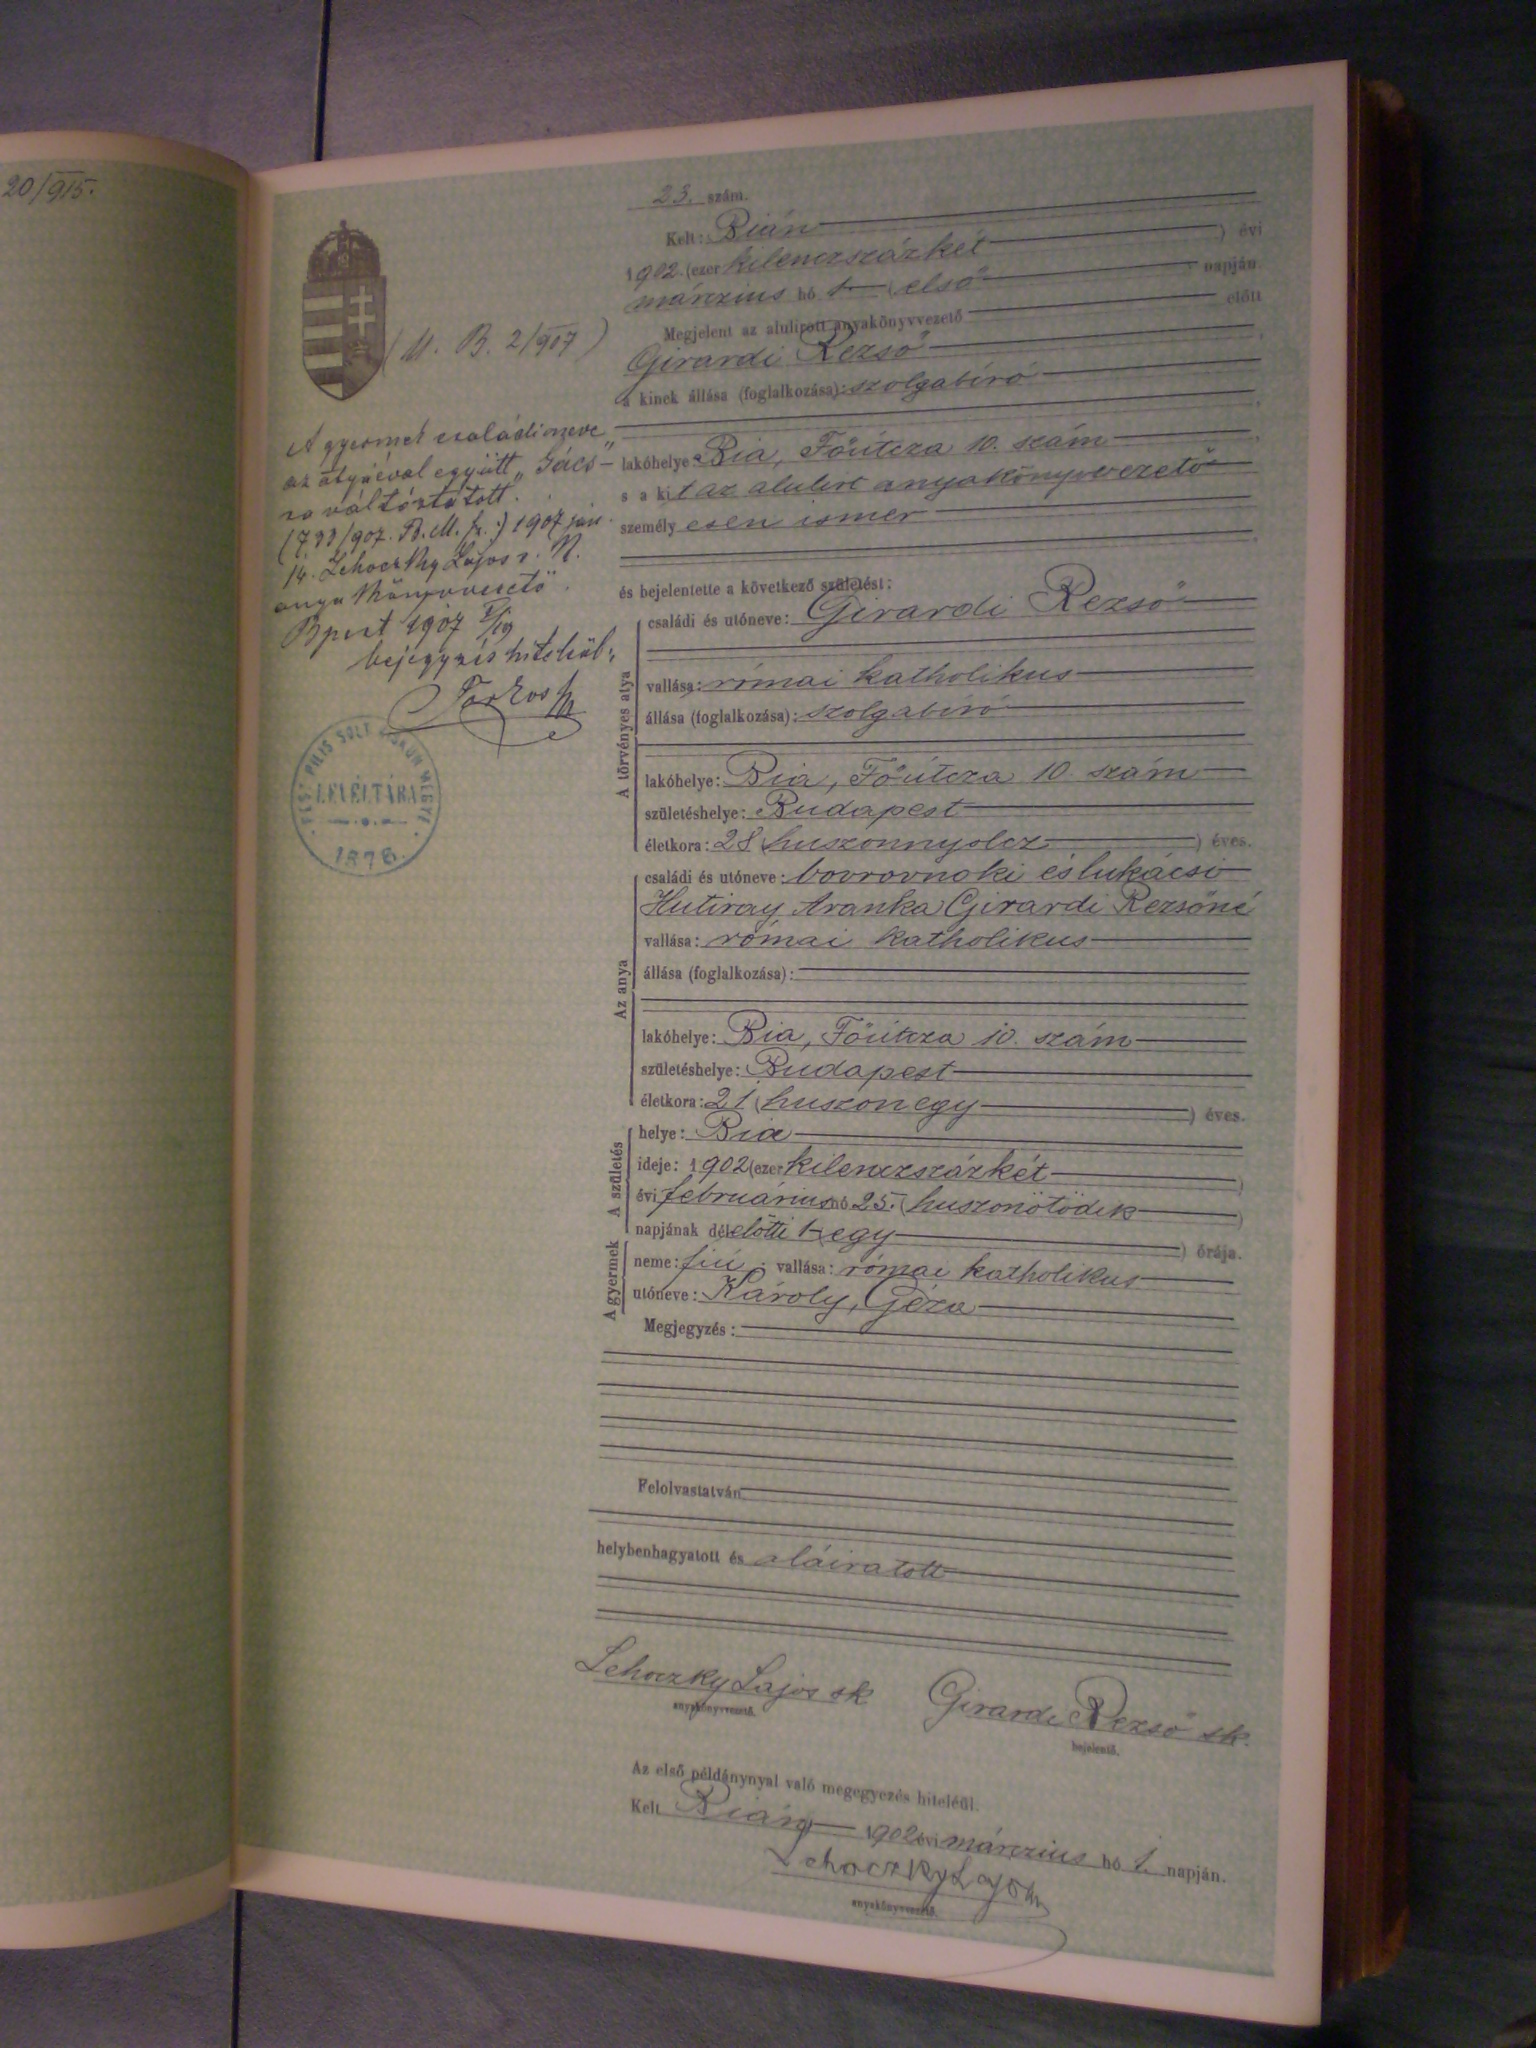 20/915.
23. szám.
Kelt: Bián
1902. (ezer kilenczszázkét ) évi
márczius hó 1 (első ) napján.
Megjelent az alulirott anyakönyvvezető előtt
Girardi Rezső
a kinek állása (foglalkozása): szolgabíró
lakóhelye Bia, Főútcza 10. szám
s a kit az alulirt anyakönyvvezető
személyesen ismer
és bejelentette a következő születést:
A törvényes atya
családi és utóneve: Girardi Rezső
vallása: római katholikus
állása (foglalkozása): szolgabíró
lakóhelye: Bia, Főútcza 10. szám
születéshelye: Budapest
életkora: 28 (huszonnyolcz ) éves.
Az anya
családi és utóneve: bovrovnoki és lukácsi
Hutiray Aranka Girardi Rezsőné
vallása: római katholikus
állása (foglalkozása):
lakóhelye: Bia, Főútcza 10. szám
születéshelye: Budapest
életkora: 21 (huszonegy ) éves.
A születés
helye: Bia
ideje: 1902 (ezer kilenczszázkét )
évi februárius hó 25. (huszonötödik )
napjának délelőtti 1 (egy ) órája.
A gyermek
neme: fiú vallása: római katholikus
utóneve: Károly, Géza
Megjegyzés:
Felolvastatván
helybenhagyatott és aláiratott
Lehoczky Lajos sk Girardi Rezső sk.
anyakönyvvezető. bejelentő.
Az első példánynyal való megegyezés hiteléül.
Kelt Bián 1902 évi márczius hó 1. napján.
Lehoczky Lajos
anyakönyvvezető.
(U. B. 2/907)
A gyermek családi neve
az atyjával együtt „Gács"-
ra változtatott.
(733/907. B. M. sz.) 1907 jan
14. Lehoczky Lajos
anyakönyvvezető.
Bpest 1907
bejegyzés hiteléül:
Farkas
PEST PILIS SOLT KISKUN MEGYE
LEVÉLTÁRA
1876.